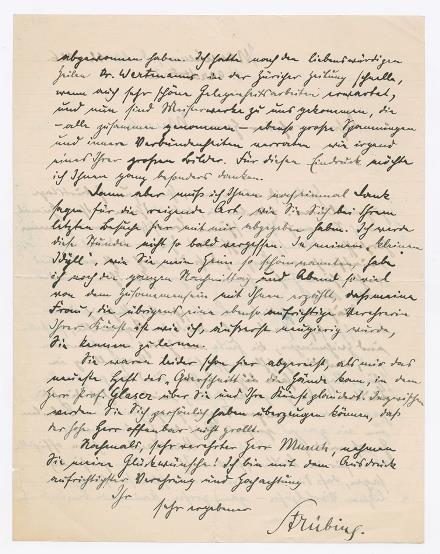 abgewonnen haben. Ich hatte nach den liebenswürdigen
Zeilen Dr. Wartmanns in der Züricher Zeitung schnelle,
wenn auch sehr schöne Gelegenheitsarbeiten erwartet,
und nun sind Meisterwerke zu uns gekommen, die
– alle zusammen genommen – ebenso große Spannungen
und innere Verbundenheiten verraten wie irgend
eines Ihrer großen Bilder. Für diesen Eindruck möchte
ich Ihnen ganz besonders danken.
Dann aber muß ich Ihnen nocheinmal Dank
sagen für die reizende Art, wie Sie Sich bei Ihrem
letzten Besuche hier mit mir abgegeben haben. Ich werde
diese Stunden nicht so bald vergessen. In meinem „kleinen
Idyll", wie Sie mein Heim so schön nannten, habe
ich noch den ganzen Nachmittag und Abend so viel
von dem Zusammensein mit Ihnen erzählt, daß meine
Frau, die übrigens eine ebenso aufrichtige Verehrerin
Ihrer Kunst ist wie ich, äußerst neugierig wurde,
Sie kennen zu lernen.
Sie waren leider schon hier abgereist, als mir das
neueste Heft des „Querschnitt" in die Hände kam, in dem
Herr Prof. Glaser über Sie und Ihre Kunst plaudert. Inzwischen
werden Sie Sich persönlich haben überzeugen können, daß
der hohe Herr offenbar nicht grollt.
Nochmals, sehr verehrter Herr Munch, nehmen
Sie meine Glückwünsche! Ich bin mit dem Ausdruck
aufrichtigster Verehrung und Hochachtung
Ihr
sehr ergebener
Strübing.